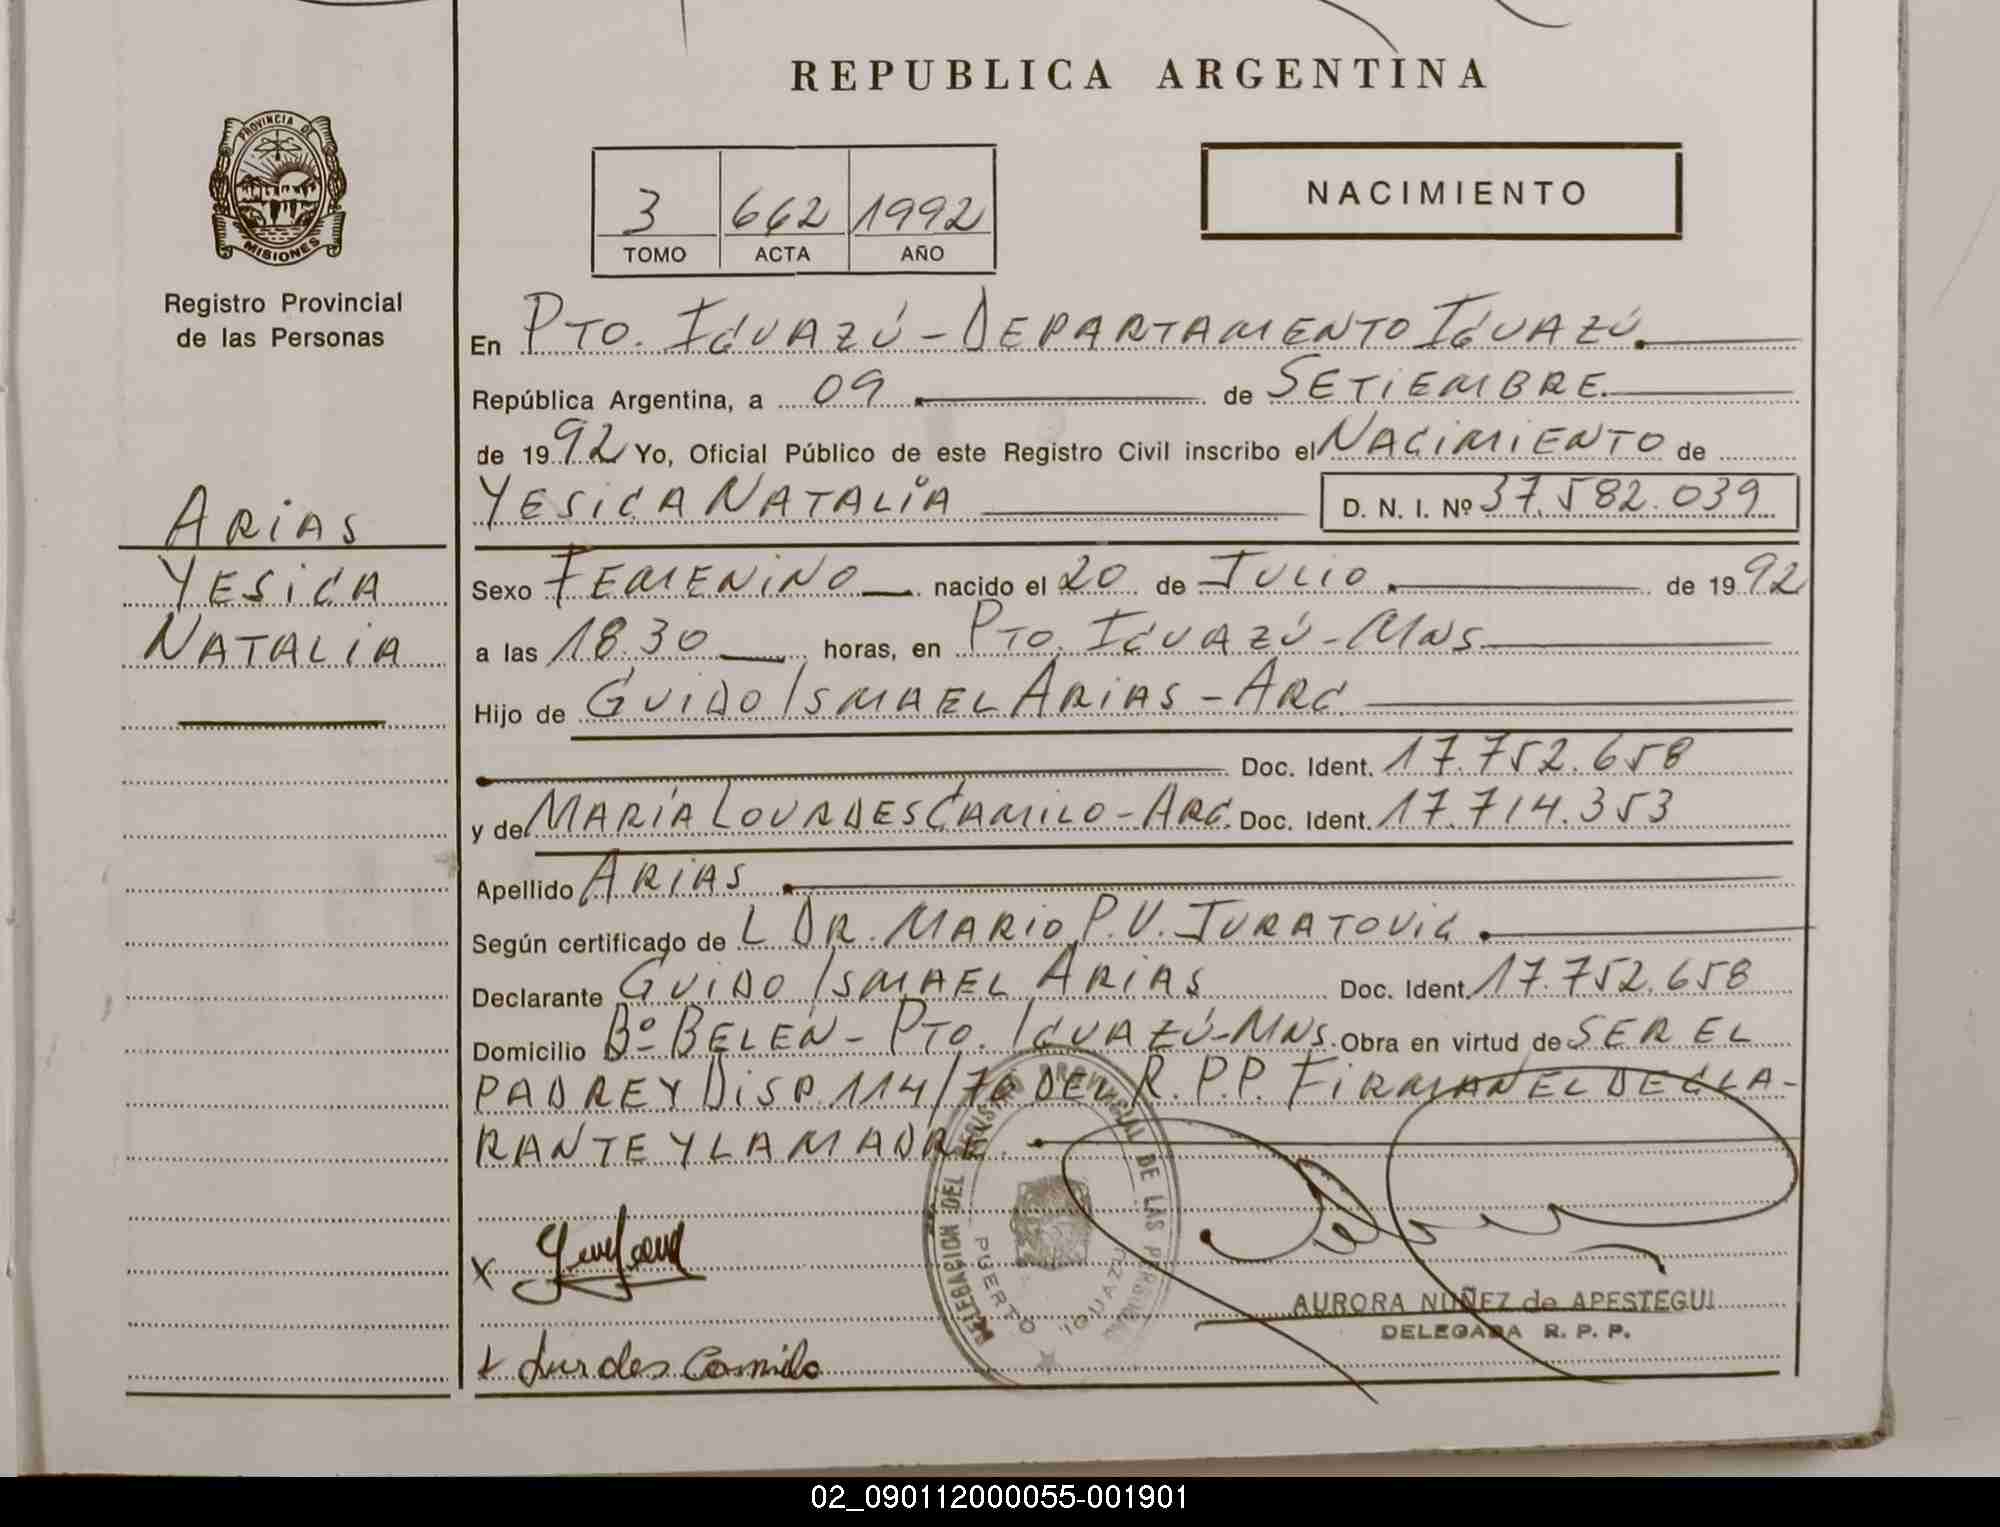 REPUBLICA ARGENTINA
PROVINCIA DE
MISIONES
Registro Provincial
de las Personas
3 662 1992
TOMO ACTA AÑO
NACIMIENTO
En PTO. IGUAZÚ - DEPARTAMENTO IGUAZÚ.
República Argentina, a 09 de SETIEMBRE.
de 1992 Yo, Oficial Público de este Registro Civil inscribo el NACIMIENTO de
YESICA NATALIA D. N. I. Nº 37.582.039
ARIAS
YESICA
NATALIA
Sexo FEMENINO nacido el 20 de JULIO de 1992
a las 18.30 horas, en PTO. IGUAZÚ - MNS.
Hijo de GUIDO ISMAEL ARIAS - ARG.
Doc. Ident. 17.752.658
y de MARÍA LOURDES CAMILO - ARG. Doc. Ident. 17.714.353
Apellido ARIAS
Según certificado de L DR. MARIO P.V. JURATOVIC
Declarante GUIDO ISMAEL ARIAS Doc. Ident. 17.752.658
Domicilio Bº BELÉN - PTO. IGUAZÚ - MNS. Obra en virtud de SER EL
PADRE Y DISP. 114/70 DEL R.P.P. FIRMAN EL DECLA-
RANTE Y LA MADRE.
DELEGACION DEL REGISTRO PROVINCIAL DE LAS PERSONAS
PUERTO IGUAZU
X
AURORA NUÑEZ de APESTEGUI
DELEGADA R. P. P.
x Lurdes Camilo
02_090112000055-001901